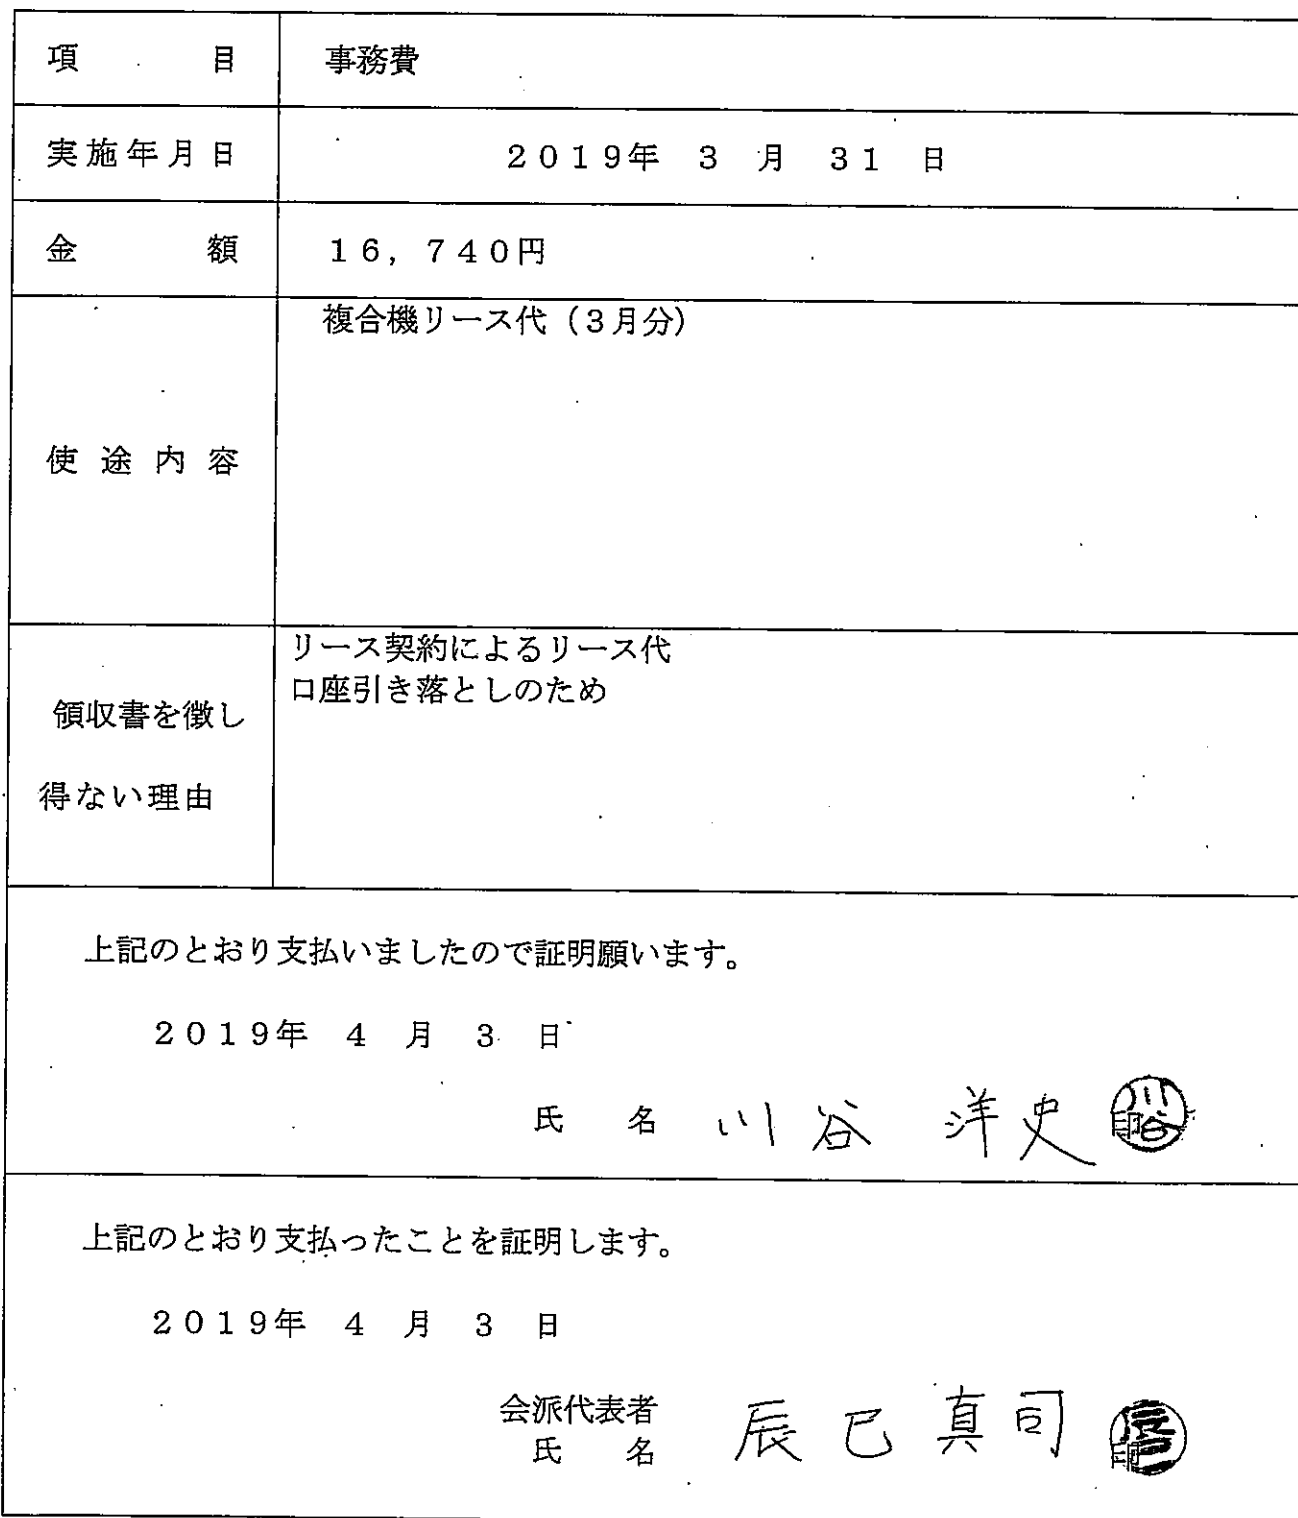 項 目 事務費
実施年月日 2019年 3 月 31 日
金 額 16,740円
複合機リース代（3月分）
使 途 内 容
リース契約によるリース代
口座引き落としのため
領収書を徴し
得ない理由
上記のとおり支払いましたので証明願います。
2019年 4 月 3 日
氏 名 川谷 洋史 川谷 印
上記のとおり支払ったことを証明します。
2019年 4 月 3 日
会派代表者
氏 名 辰巳真司 辰巳 印